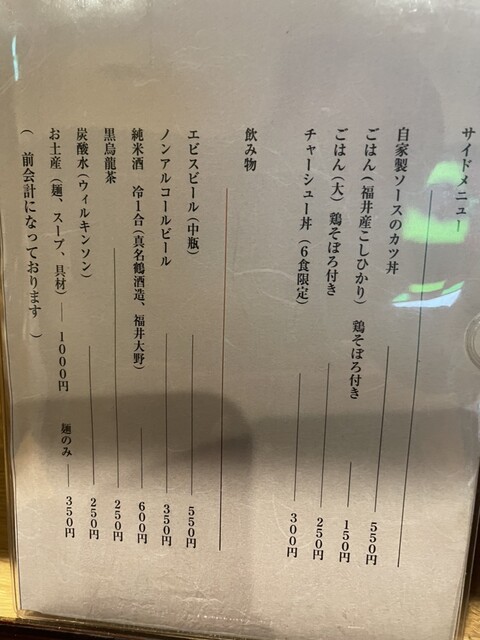 サイドメニュー
自家製ソースのカツ丼 550円
ごはん(福井産こしひかり) 鶏そぼろ付き 150円
ごはん(大) 鶏そぼろ付き 250円
チャーシュー丼 (6食限定) 300円
飲み物
エビスビール(中瓶) 550円
ノンアルコールビール 350円
純米酒 冷1合(真名鶴酒造、福井大野) 600円
黒烏龍茶 250円
炭酸水(ウィルキンソン) 250円
お土産(麺、スープ、具材) 1000円 麺のみ 350円
( 前会計になっております )